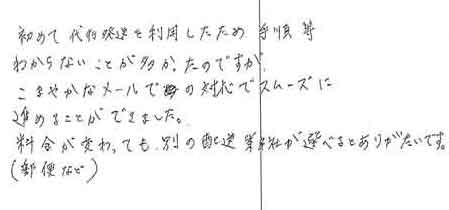 初めて代行発送を利用したため手順等
わからないことが多かったのですが
こまやかなメールでの対応でスムーズに
進めることができました。
料金が変わっても、別の配送業者が選べるとありがたいです。
(郵便など)